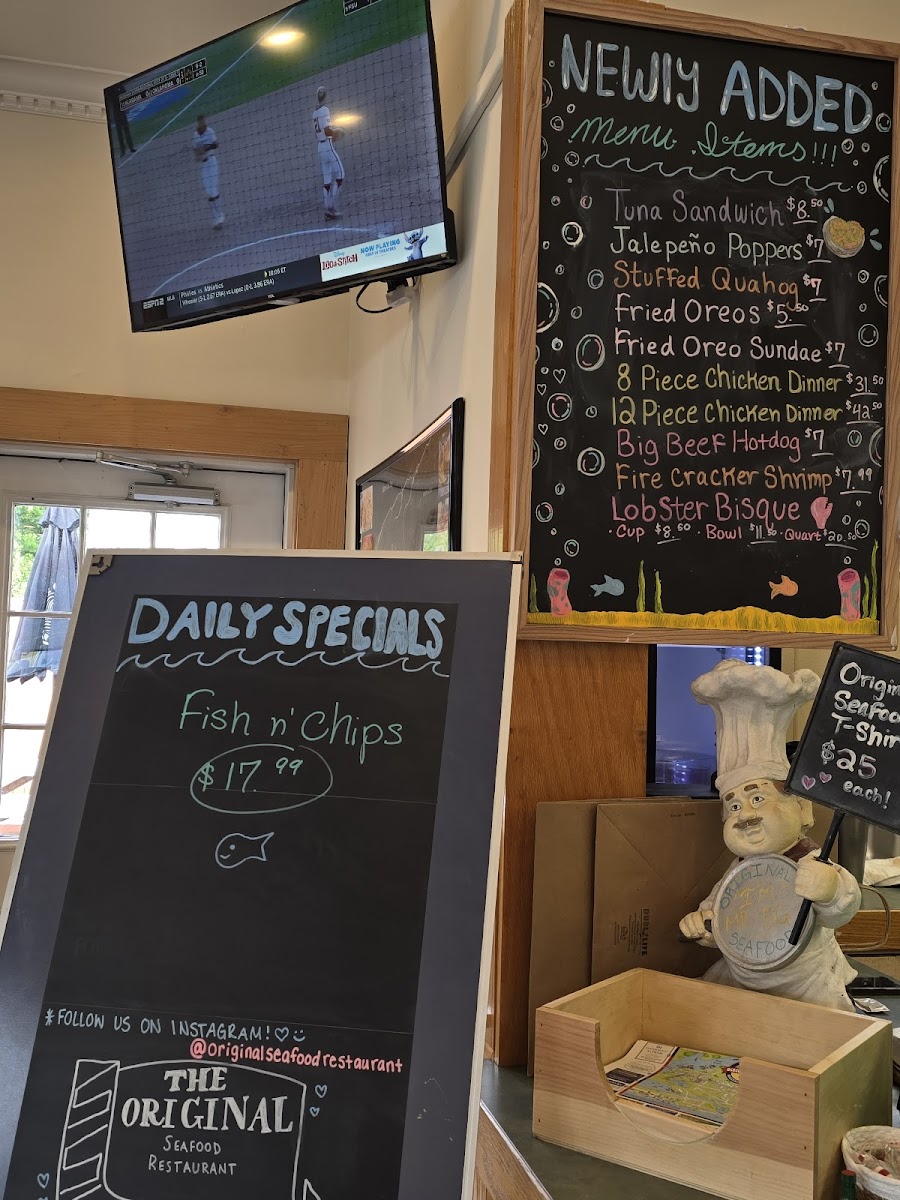 NOW PLAYING
Phillies vs Athletics
ESPN2
NEWlY ADDED
Menu Items!!!
Tuna Sandwich $8.50
Jalepeño Poppers $7
Stuffed Quahog $7
Fried Oreos $5.50
Fried Oreo Sundae $7
8 Piece Chicken Dinner $31.50
12 Piece Chicken Dinner $42.50
Big Beef Hotdog $7
Fire Cracker Shrimp $7.99
Lobster Bisque
· Cup $8.50 · Bowl $11.50 · Quart $20.50
DAILY SPECIALS
Fish n' Chips
$17.99
*FOLLOW US ON INSTAGRAM!
@originalseafoodrestaurant
THE
ORIGINAL
SEAFOOD
RESTAURANT
Origin
Seafoo
T-Shir
$25
each!
ORIGINAL
SEAFOOD
DURO
LIFE